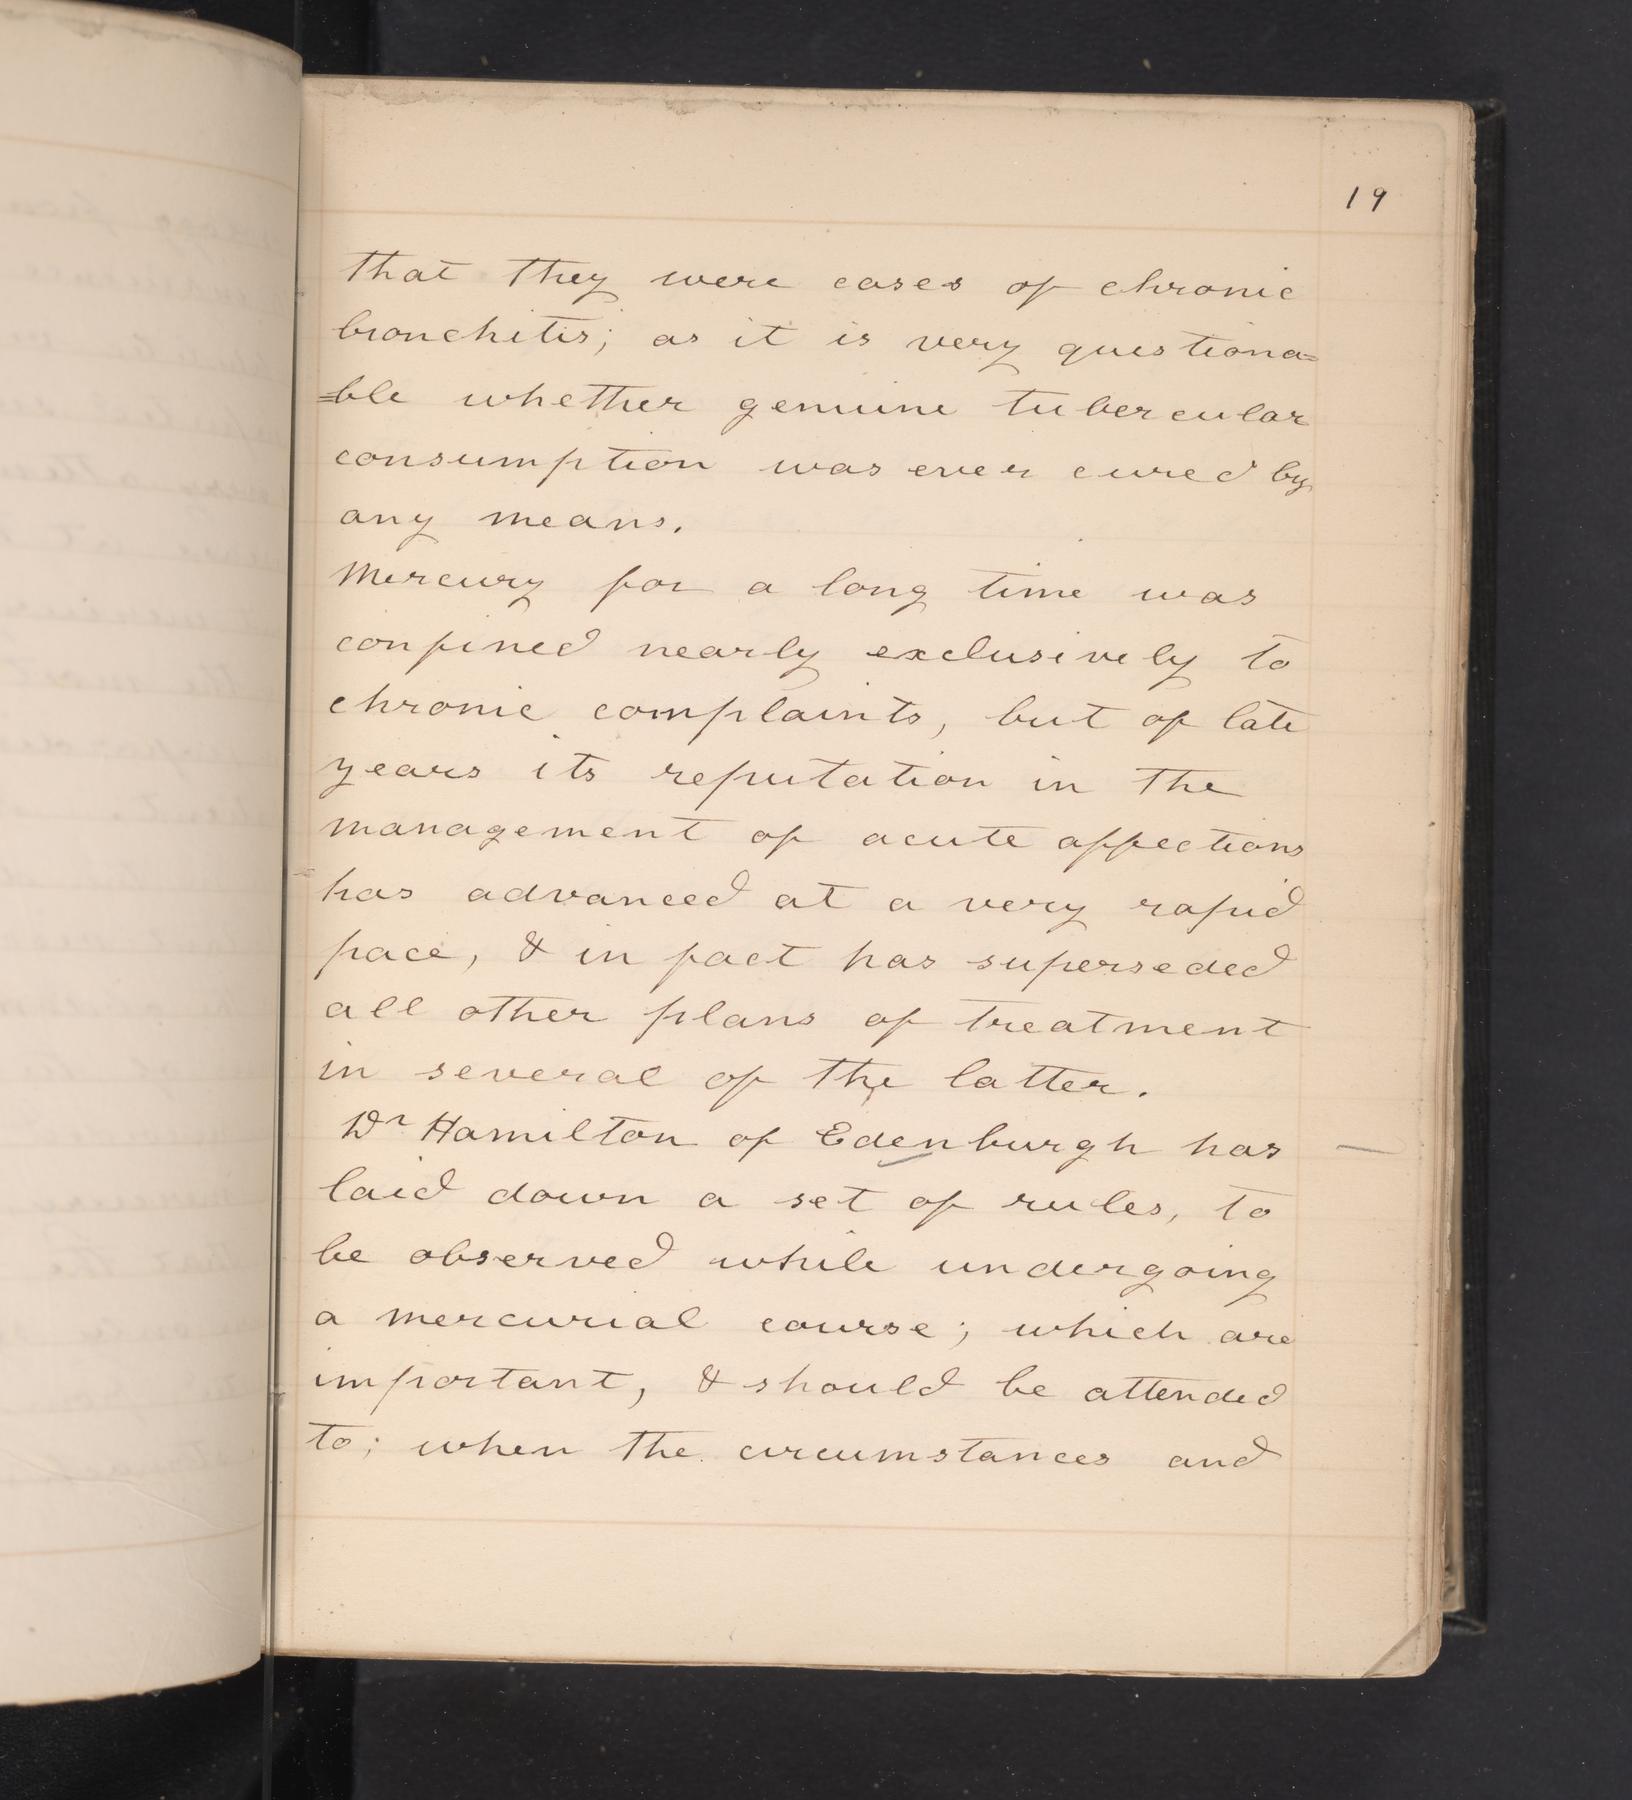 19
that they were cases of chronic
bronchitis; as it is very questiona=
=ble whether genuine tubercular
consumption was ever cured by
any means.
Mercury for a long time was
confined nearly exclusively to
chronic complaints, but of late
years its reputation in the
management of acute affections
has advanced at a very rapid
pace, & in fact has superseded
all other plans of treatment
in several of the latter.
Dr Hamilton of Edenburgh has
laid down a set of rules, to
be observed while undergoing
a mercurial course; which are
important, & should be attended
to; when the circumstances and